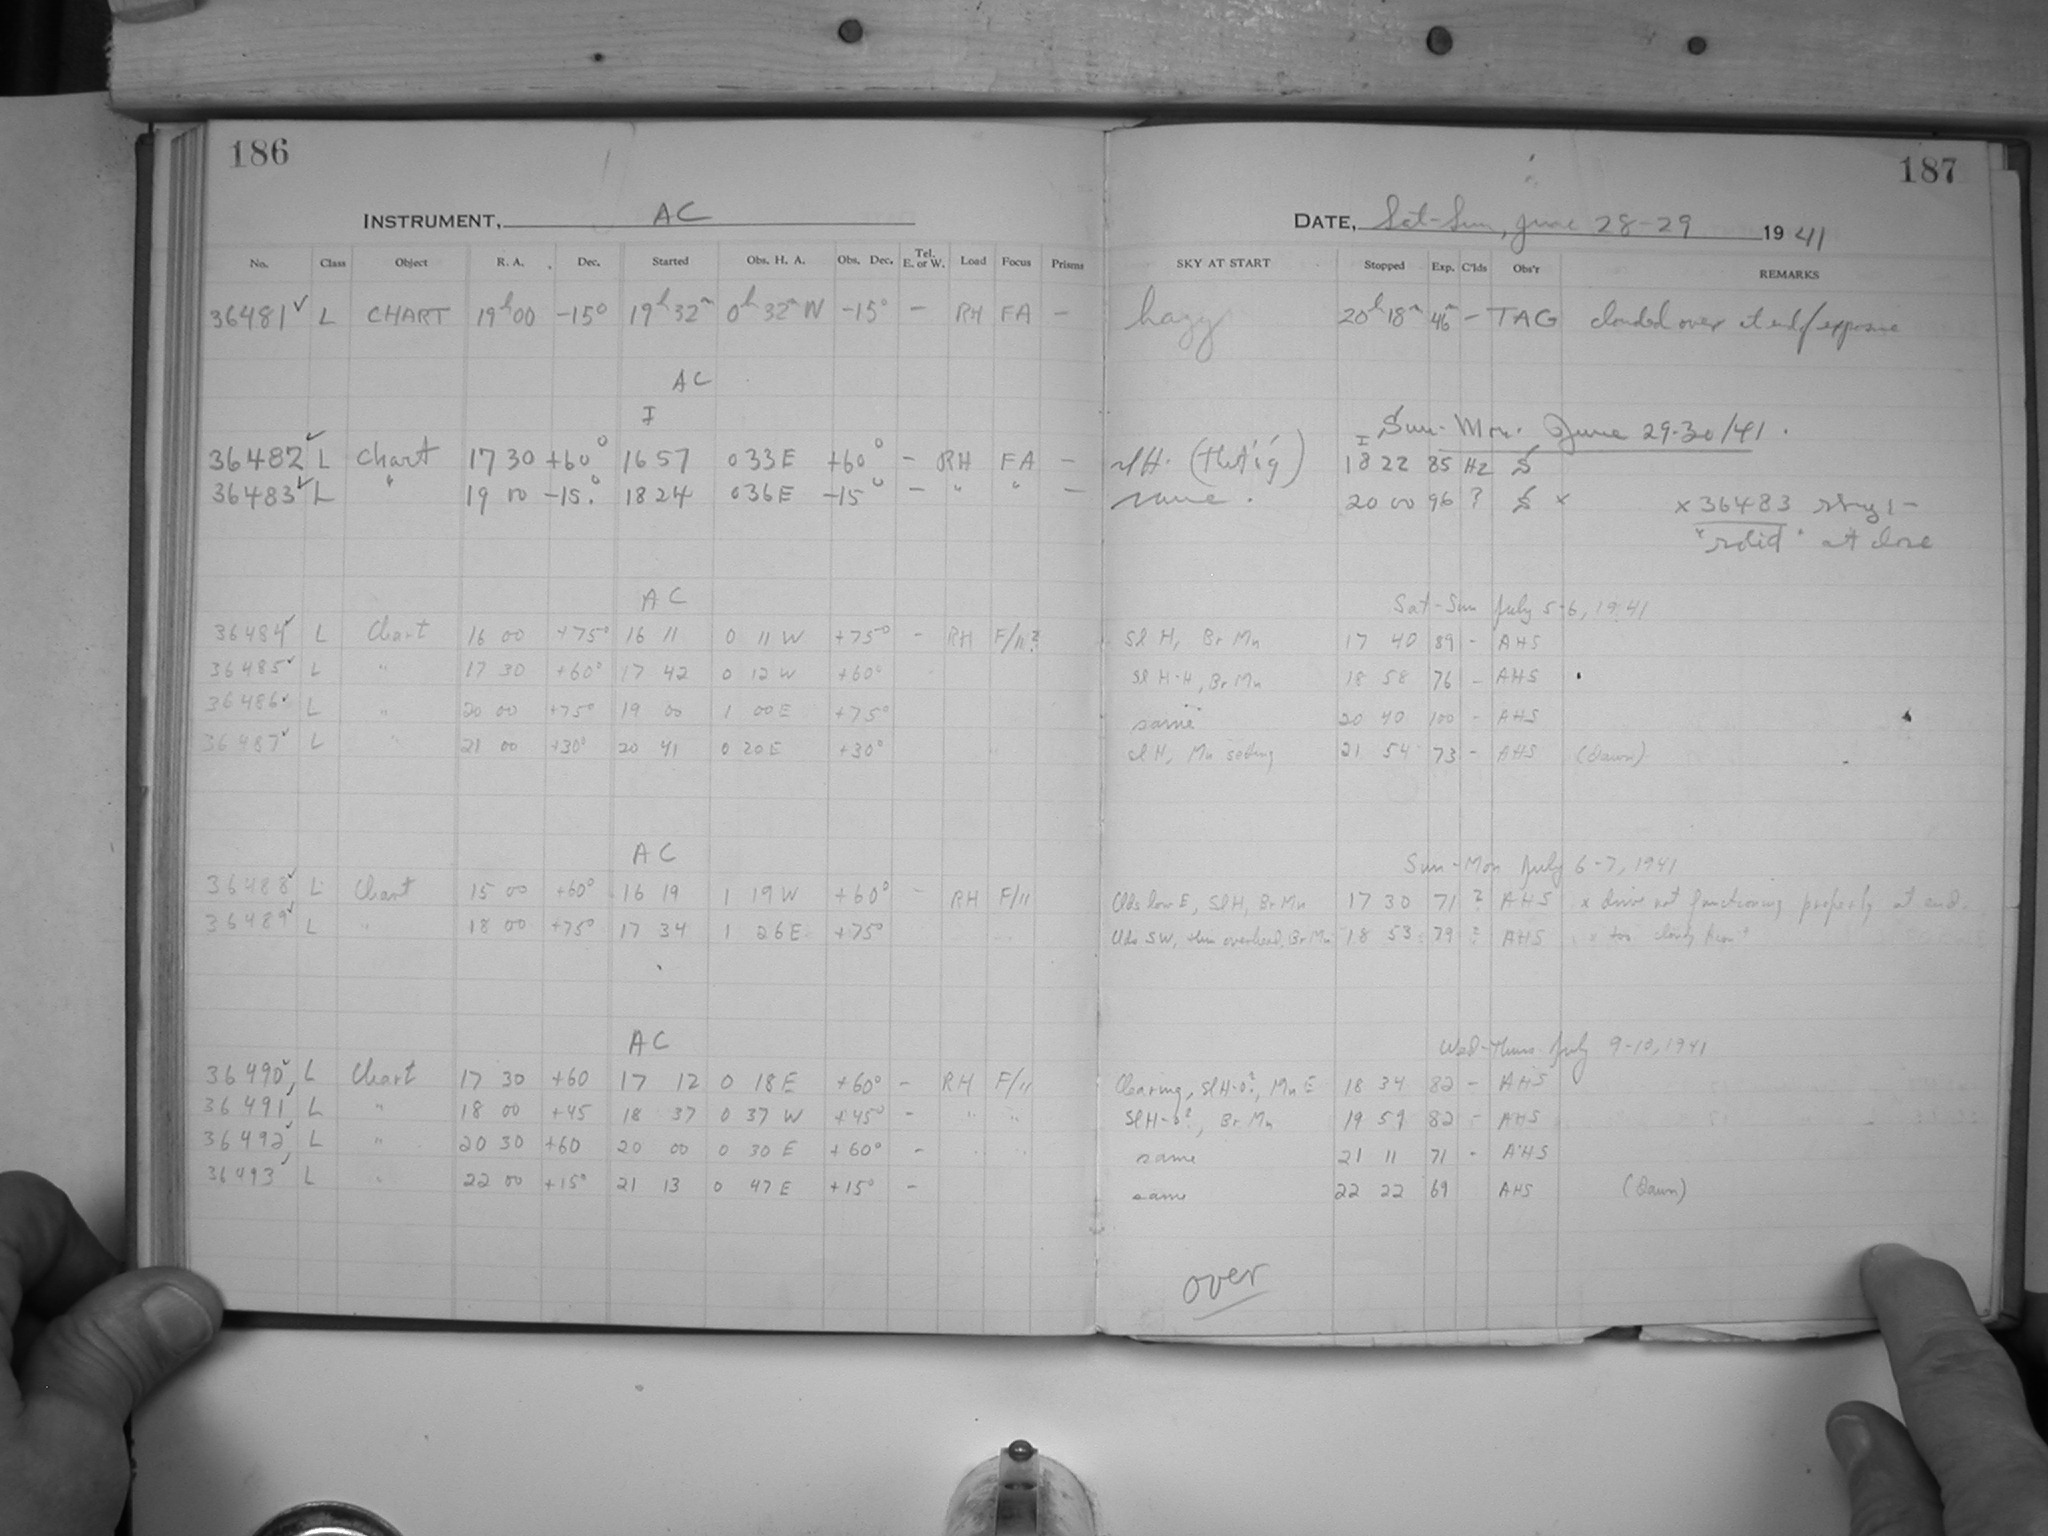 186
INSTRUMENT, AC
No. Class Object R. A. Dec. Started Obs. H. A. Obs. Dec. Tel. E. or W. Load Focus Prisms
36481 ✓ L CHART 19h00 -15° 19h 32m 0h 32m W -15° - RH FA -
AC
I
36482 ✓ L Chart 17 30 +60° 16 57 0 33 E +60° - RH FA -
36483 ✓ L " 19 00 -15° 18 24 0 36 E -15° - " " -
AC
36484 ✓ L Chart 16 00 +75° 16 11 0 11 W +75° - RH F/11?
36485 ✓ L " 17 30 +60° 17 42 0 12 W +60°
36486 ✓ L " 20 00 +75° 19 00 1 00 E +75°
36487 ✓ L " 21 00 +30° 20 41 0 20 E +30°
AC
36488 ✓ L Chart 15 00 +60° 16 19 1 19 W +60° - RH F/11
36489 ✓ L " 18 00 +75° 17 34 1 26 E +75°
AC
36490 ✓ L Chart 17 30 +60 17 12 0 18 E +60° - RH F/11
36491 L " 18 00 +45 18 37 0 37 W +45° - " "
36492 ✓ L " 20 30 +60 20 00 0 30 E +60° -
36493 ✓ L " 22 00 +15° 21 13 0 47 E +15° -
187
DATE, Sat-Sun, June 28-29 1941
SKY AT START Stopped Exp. C'lds Obs'r REMARKS
hazy 20h 18m 46m - TAG clouded over at end of exposure
Sun-Mon. June 29-30/41.
I
sl H. 18 22 85 Hz S
same. 20 00 96 ? S x x 36483 sky
"solid" at close
Sat-Sun July 5-6, 1941
Sl H, Br Mn 17 40 89 - AHS
Sl H-H, Br Mn 18 58 76 - AHS
same 20 40 100 - AHS
Sl H, Mn setting 21 54 73 - AHS (Dawn)
Sun-Mon July 6-7, 1941
Clds low E, Sl H, Br Mn 17 30 71 ? AHS x drive not functioning properly at end
Clds SW, thin overhead, Br Mn 18 53 79 ? AHS x too cloudy
Wed-Thurs July 9-10, 1941
Clearing, Sl H-0?, Mn E 18 34 82 - AHS
Sl H-0?, Br Mn 19 59 82 - AHS
same 21 11 71 - AHS
same 22 22 69 AHS (Dawn)
over